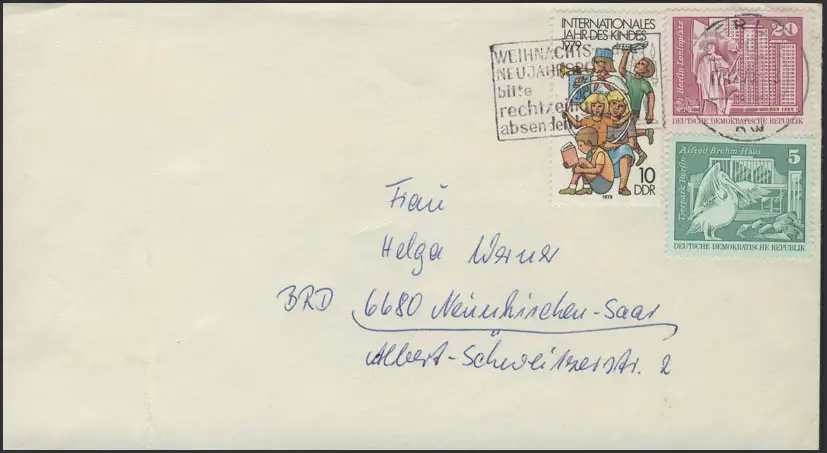 INTERNATIONALES
JAHR DES KINDES
1979
10
DDR
1979
WEIHNACHTS-
NEUJAHRSPO
bitte
rechtzei
absenden
20
Berlin, Leninplatz
DEUTSCHE DEMOKRATISCHE REPUBLIK
Alfred-Brehm-Haus
5
Tierpark Berlin
DEUTSCHE DEMOKRATISCHE REPUBLIK
Frau
Helga Werner
BRD 6680 Neunkirchen-Saar
Albert-Schweitzerstr. 2